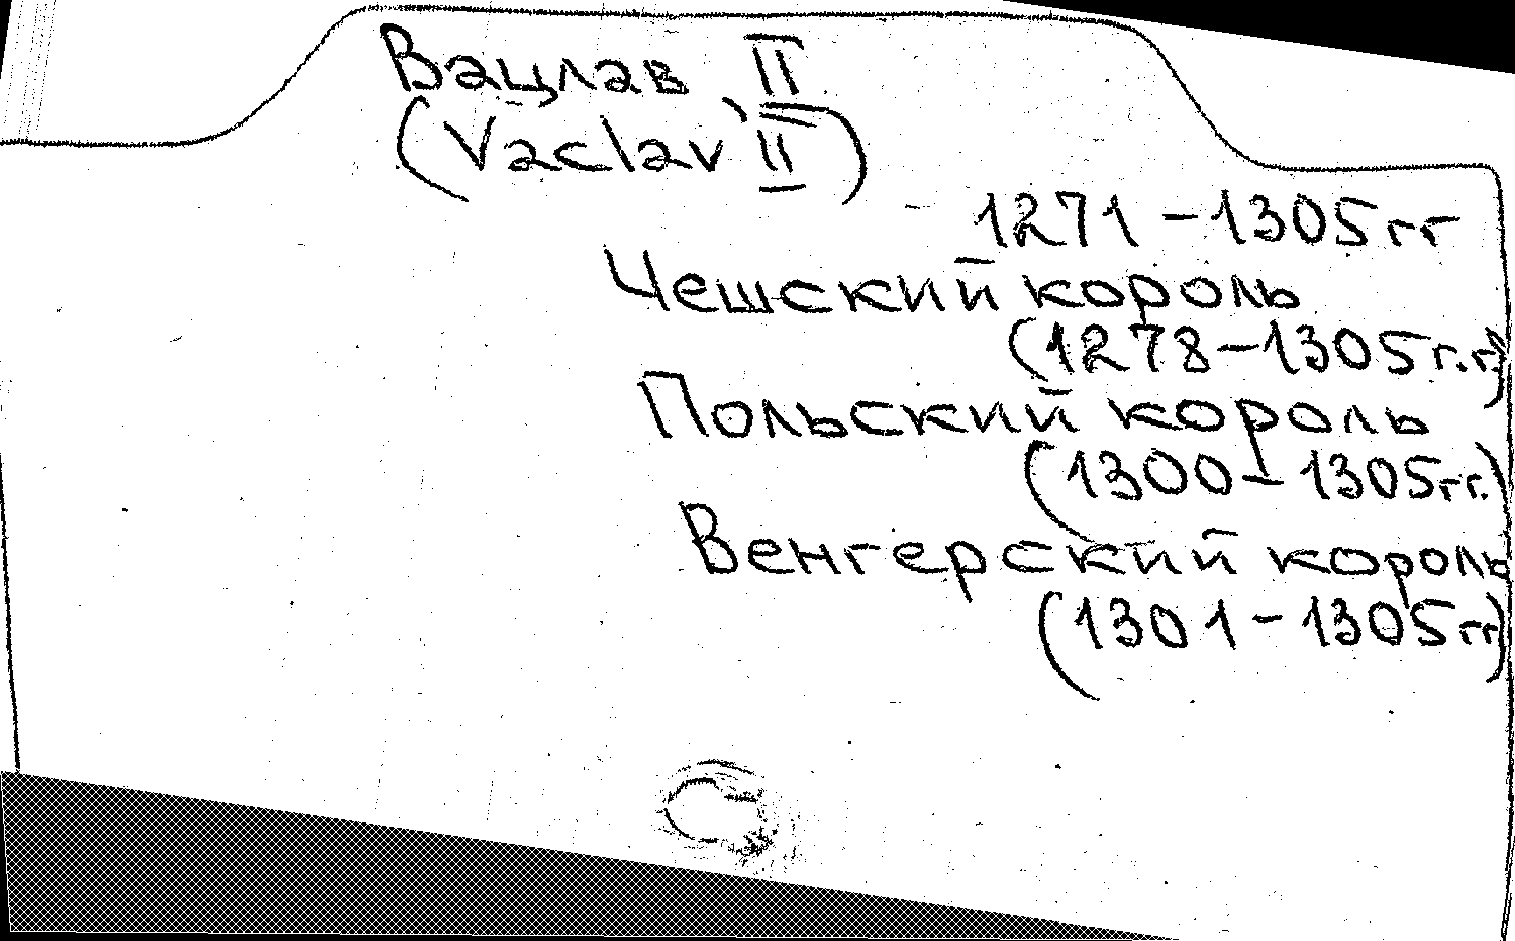 Вацлав II
(Vaclav II)
1271 – 1305 гг
Чешский король
(1278 – 1305 г.г)
Польский король
(1300 – 1305 гг.)
Венгерский король
(1301 – 1305 гг)